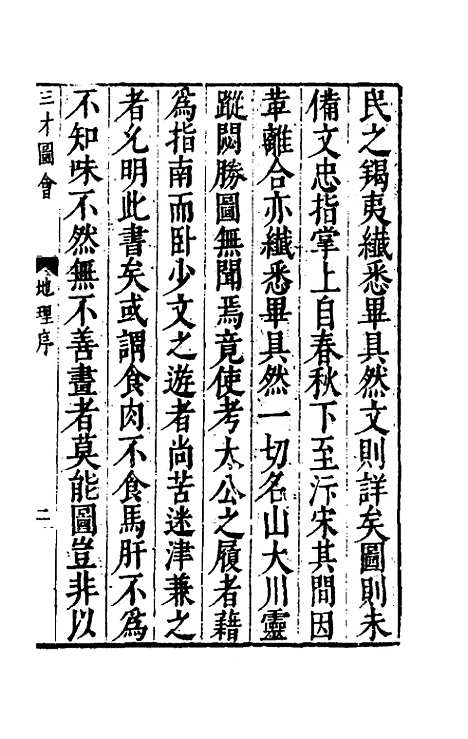 民之錫夷纎悉畢具然文則詳矣圖則未
備文忠指掌上自春秋下至汴宋其間因
革離合亦纎悉畢具然一切名山大川靈
蹤閟勝圖無聞焉竟使考大公之履者藉
為指南而卧少文之遊者尚苦迷津兼之
者允明此書矣或謂食肉不食馬肝不為
不知味不然無不善畫者莫能圖豈非以
三才圖會 地理序 二